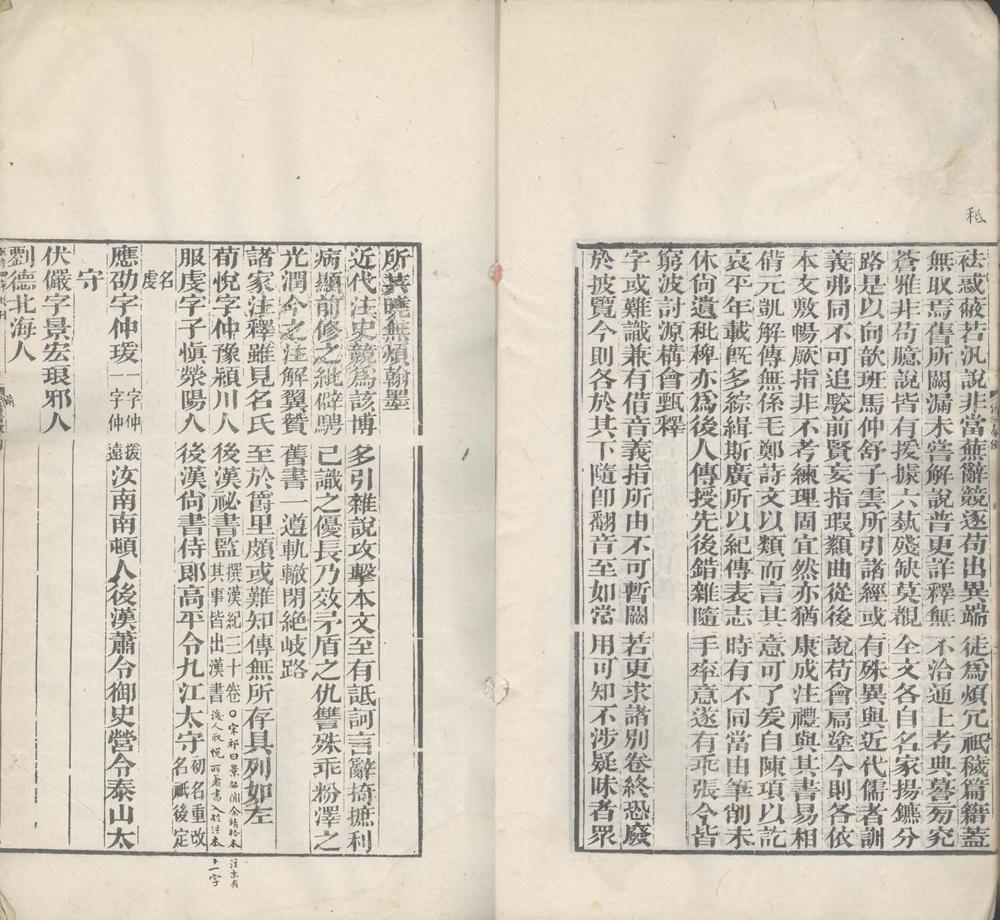 秪
祛惑蔽若汎說非當蕪辭競逐苟出異端徒為煩宂祇穢篇籍蓋
無取焉舊所闕漏未嘗解說普更詳釋無不洽通上考典謩旁究
蒼雅非苟臆說皆有援據六藝殘缺莫覩全文各自名家揚鑣分
路是以向歆班馬仲舒子雲所引諸經或有殊異與近代儒者訓
義弗同不可追駮前賢妄指瑕纇曲從後說苟會扃塗今則各依
本文敷暢厥指非不考練理固宜然亦猶康成注禮與其書易相
偝元凱解傳無係毛鄭詩文以類而言其意可了爰自陳項以訖
哀平年載既多綜緝斯廣所以紀傳表志時有不同當由筆削未
休尚遺秕稗亦為後人傳授先後錯雜隨手率意遂有乖張今皆
窮波討源構會甄釋
字或難識兼有借音義指所由不可暫闕若更求諸別卷終恐廢
於披覽今則各於其下隨即翻音至如常用可知不涉疑昧者眾
所共曉無煩翰墨
近代注史競為該博多引雜說攻擊本文至有詆訶言辭掎摭利
病顯前修之紕僻騁己識之優長乃效矛盾之仇讐殊乖粉澤之
光潤今之注解翼贊舊書一遵軌轍閉絕岐路
諸家注釋雖見名氏至於爵里頗或難知傳無所存具列如左
荀悅字仲豫潁川人後漢祕書監撰漢紀三十卷其事皆出漢書○宋祁曰景祐間余靖校本注末有後人取悅所著書入於注本十一字
服虔字子愼滎陽人後漢尚書侍郎高平令九江太守初名重改名祇後定
名虔
應劭字仲瑗一字仲援一字仲遠汝南南頓人後漢蕭令御史營令泰山太
守
伏儼字景宏琅邪人
劉德北海人